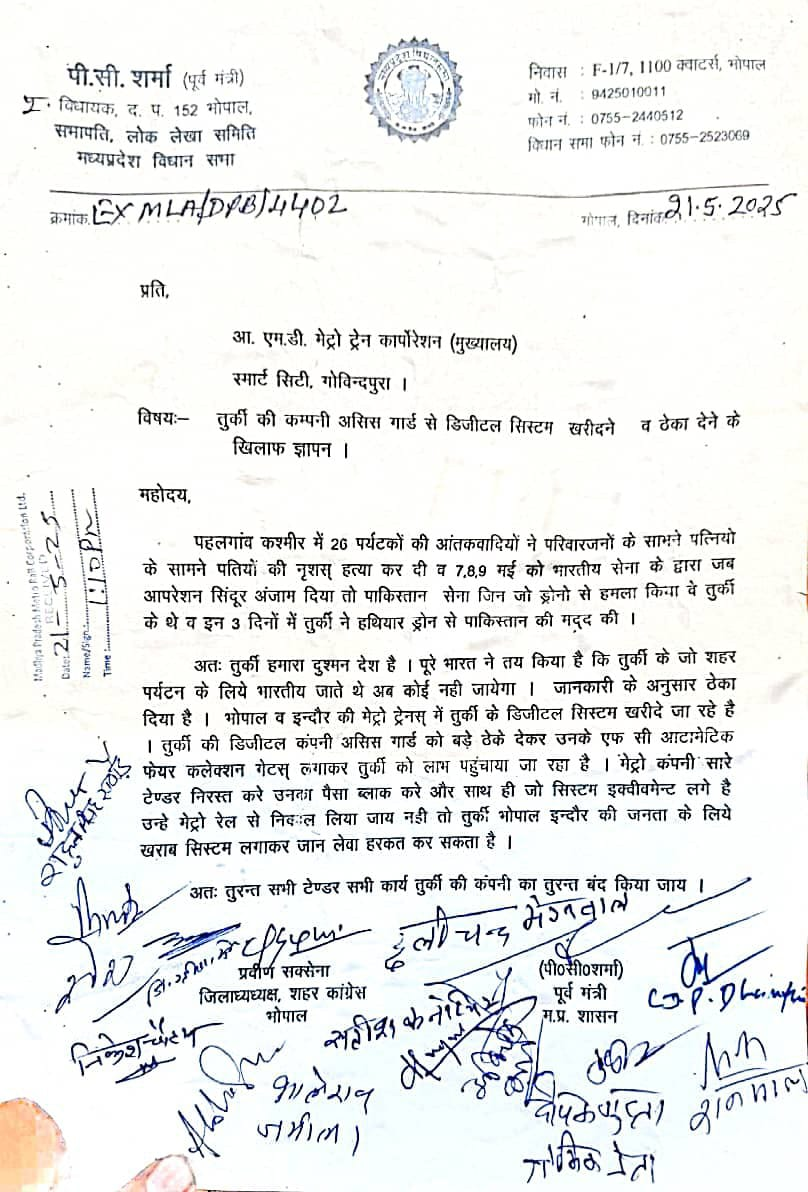 पी.सी. शर्मा (पूर्व मंत्री)
पू. विधायक, द. प. 152 भोपाल,
सभापति, लोक लेखा समिति
मध्यप्रदेश विधान सभा
मध्यप्रदेश विधान सभा
निवास : F-1/7, 1100 क्वाटर्स, भोपाल
मो. नं. : 9425010011
फोन नं. : 0755-2440512
विधान सभा फोन नं. : 0755-2523069
क्रमांक. EX MLA/DPB/4402
भोपाल, दिनांक 21.5.2025
प्रति,
आ. एम.डी. मेट्रो ट्रेन कार्पोरेशन (मुख्यालय)
स्मार्ट सिटी, गोविन्दपुरा ।
विषयः– तुर्की की कम्पनी असिस गार्ड से डिजीटल सिस्टम खरीदने व ठेका देने के
खिलाफ ज्ञापन ।
महोदय,
पहलगांव कश्मीर में 26 पर्यटकों की आंतकवादियों ने परिवारजनों के सामने पत्नियो
के सामने पतियों की नृशस् हत्या कर दी व 7,8,9 मई को भारतीय सेना के द्वारा जब
आपरेशन सिंदूर अंजाम दिया तो पाकिस्तान सेना जिन जो ड्रोनो से हमला किया वे तुर्की
के थे व इन 3 दिनों में तुर्की ने हथियार ड्रोन से पाकिस्तान की मद्द की ।
अतः तुर्की हमारा दुश्मन देश है । पूरे भारत ने तय किया है कि तुर्की के जो शहर
पर्यटन के लिये भारतीय जाते थे अब कोई नही जायेगा । जानकारी के अनुसार ठेका
दिया है । भोपाल व इन्दौर की मेट्रो ट्रेनस् में तुर्की के डिजीटल सिस्टम खरीदे जा रहे है
। तुर्की की डिजीटल कंपनी असिस गार्ड को बड़े ठेके देकर उनके एफ सी आटामेटिक
फेयर कलेक्शन गेटस् लगाकर तुर्की को लाभ पहुंचाया जा रहा है । मेट्रो कंपनी सारे
टेण्डर निरस्त करे उनका पैसा ब्लाक करे और साथ ही जो सिस्टम इक्वीवमेन्ट लगे है
उन्हे मेट्रो रेल से निकाल लिया जाय नही तो तुर्की भोपाल इन्दौर की जनता के लिये
खराब सिस्टम लगाकर जान लेवा हरकत कर सकता है ।
अतः तुरन्त सभी टेण्डर सभी कार्य तुर्की की कंपनी का तुरन्त बंद किया जाय ।
Madhya Pradesh Metro Rail Corporation Ltd.
RECEIVED
Date: 21-5-25
Name/Sign:
Time:
दुलीचन्द मेगवाल
प्रवीण सक्सेना
जिलाध्यध्यक्ष, शहर कांग्रेस
भोपाल
(पी0सी0शर्मा)
पूर्व मंत्री
म.प्र. शासन
भालेराव
जमील ।
दीपक गुप्ता